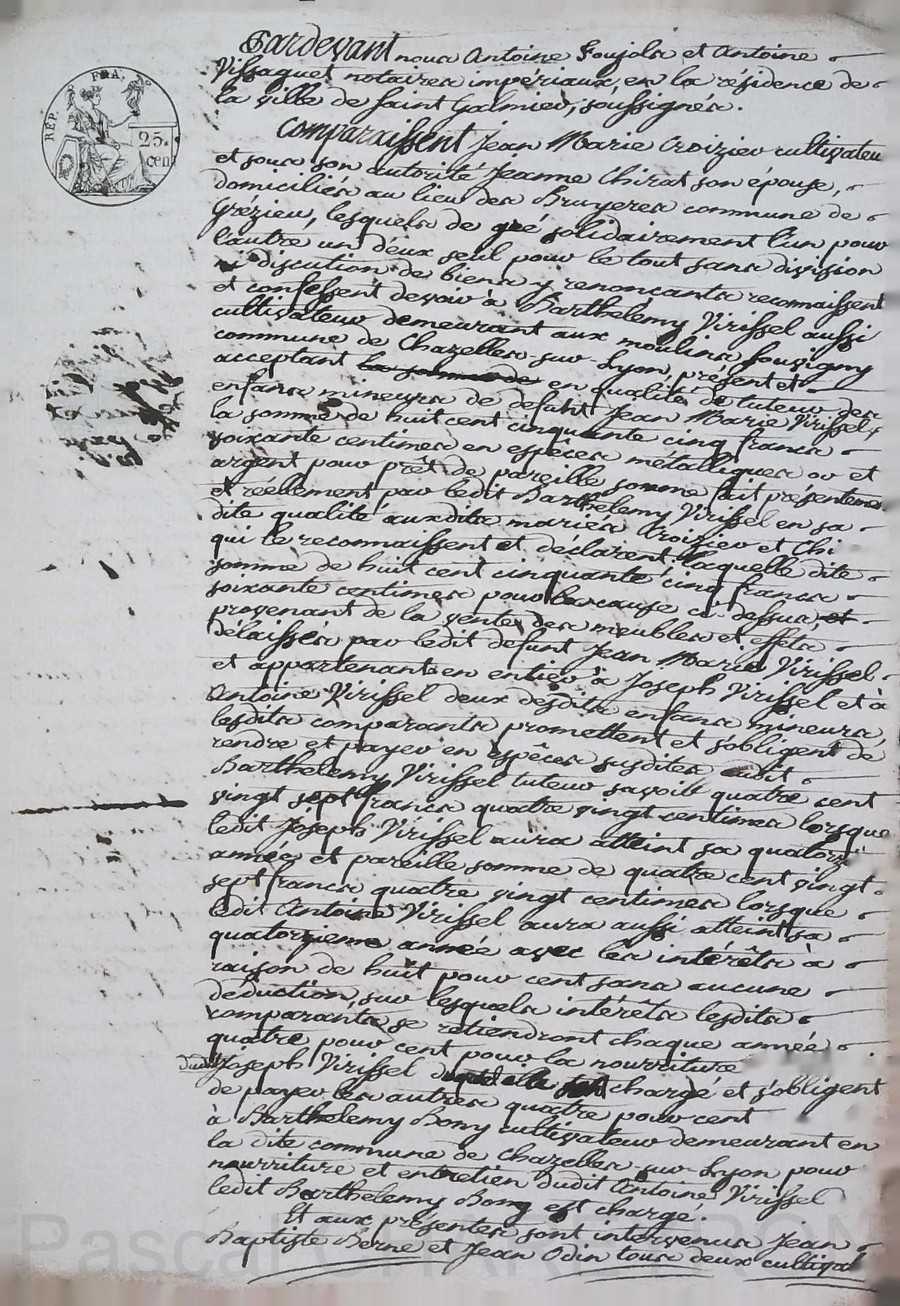 Pardevant nous Antoine Soujols et Antoine
Vissaguet notaires impériaux, en la résidence de
la ville de Saint Galmier, soussignés.
REP. FRA.
25.
cen
Comparaissent Jean Marie Croizier cultivateu
et sous son autorité Jeanne Chirat son épouse,
domiciliés au lieu des Bruyeres commune de
Grézieu, lesquels de gré solidairement l'un pour
l'autre un d'eux seul pour le tout sans division
ni discution de biens y renonçants reconnaissent
et confessent devoir à Barthélemy Virissel aussi
cultivateur demeurant aux moulins Souvigny
commune de Chazelles-sur-Lyon, présent et
acceptant la somme de en qualité de tuteur des
enfans mineurs de défunt Jean Marie Virissel,
la somme de huit cent cinquante cinq francs
soixante centimes en espèces métalliques or et
argent pour prêt de pareille somme fait présenteme
et réellement par ledit Barthelemy Virissel en sa
dite qualité auxdits mariés Croizier et Chi
qui le reconnaissent et déclarent laquelle dite
somme de huit cent cinquante cinq francs
soixante centimes pour les cause ci-dessus et
provenant de la vente des meubles et effets
délaissés par ledit defunt Jean Marie Virissel
et appartenants en entier à Joseph Virissel et à
Antoine Virissel deux desdits enfans mineurs,
lesdits comparants promettent et s'obligent de
rendre et payer en espêces susdites audit
Barthelemy Virissel tuteur savoir quatre cent
vingt sept francs quatre vingt centimes lorsque
ledit Joseph Virissel aura atteint sa quatorz
année et pareille somme de quatre cent vingt
sept francs quatre vingt centimes lorsque
ledit Antoine Virissel aura aussi atteint sa
quatorzieme année avec les intérêts à
raison de huit pour cent sans aucune
deduction, sur lesquels intérêts lesdits
comparants se retiendront chaque année
quatre pour cent pour la nourriture
dudit Joseph Virissel chargé et s'obligent
de payer les autres quatre pour cent
à Barthelemy Bony cultivateur demeurant en
la dite commune de Chazelles-sur-Lyon pour
nourriture et entretien dudit Antoine Virissel
ledit Barthelemy Bony est chargé.
Et aux présentes sont intervenus Jean
Baptiste Berne et Jean Odin tous deux cultivat